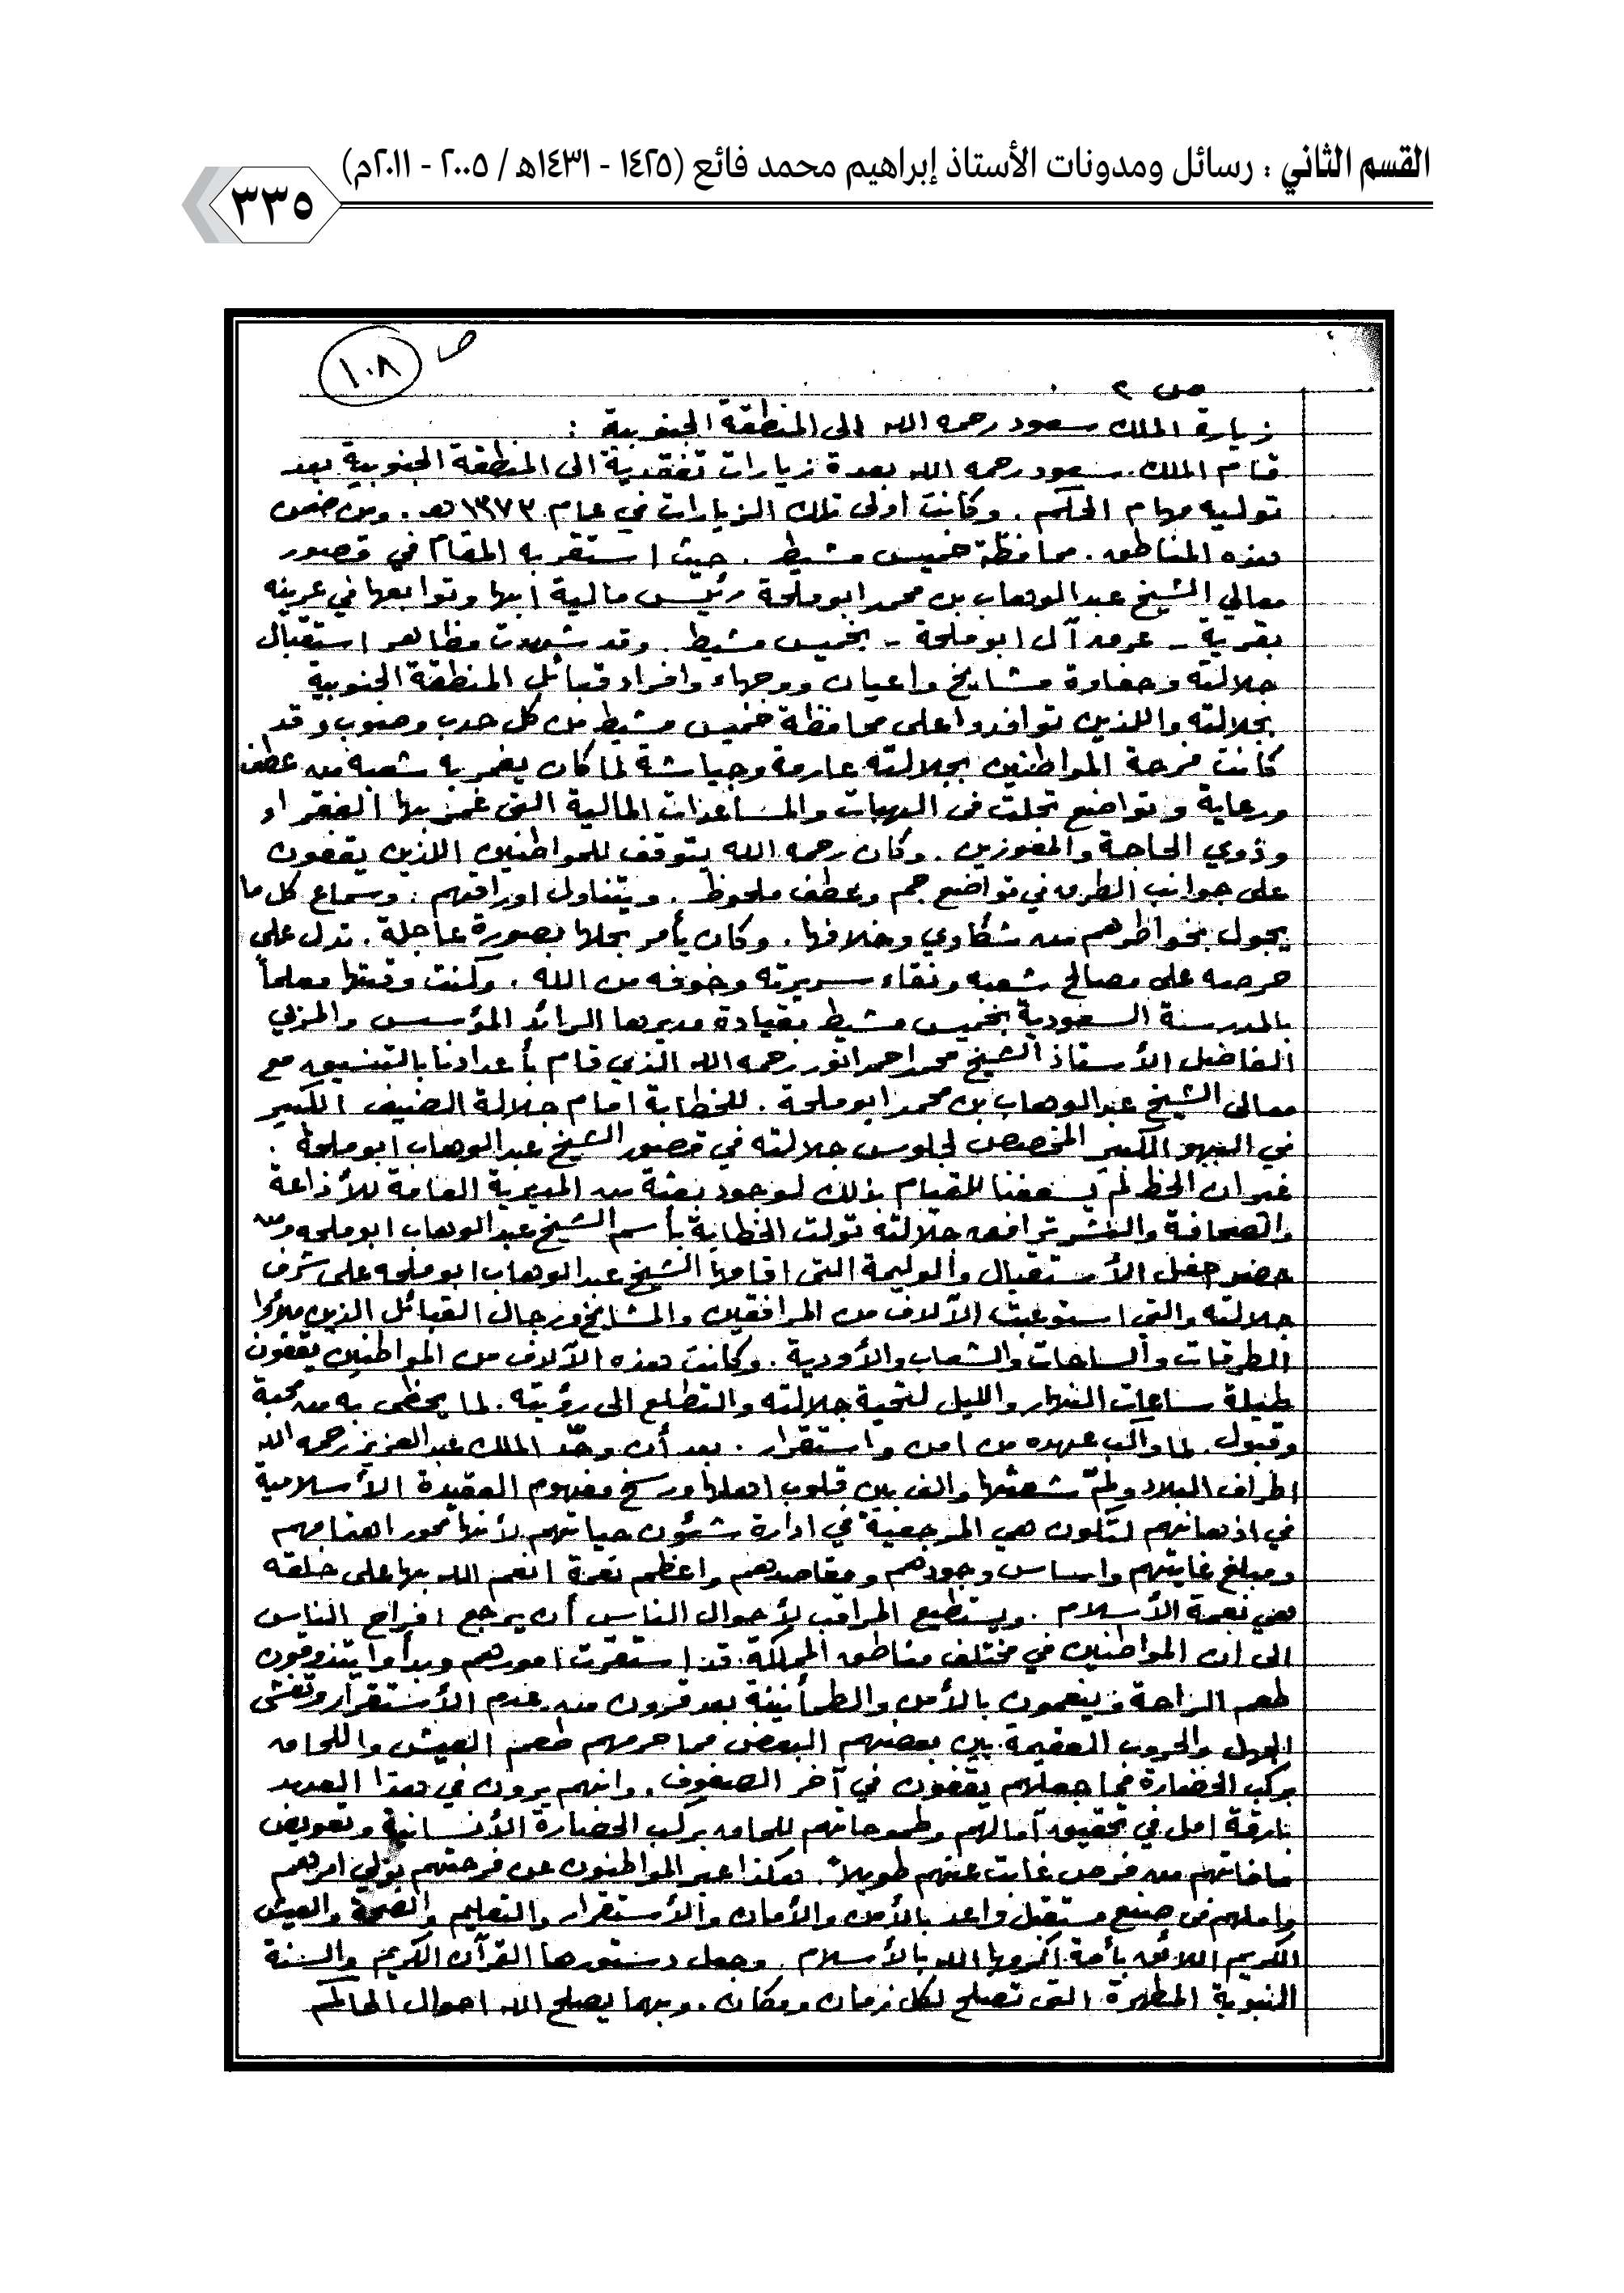 القسم الثاني : رسائل ومدونات الأستاذ إبراهيم محمد فائع (١٤٢٥ - ١٤٣١هـ / ٢٠٠٥ - ٢٠١١م)
٣٣٥
ص ١٠٨
ص ٢
زيارة الملك سعود رحمه الله الى المنطقة الجنوبية :
قام الملك سعود رحمه الله بعدة زيارات تفقدية الى المنطقة الجنوبية بعد
توليه مهام الحكم . وكانت اولى تلك الزيارات في عام ١٣٧٣هـ . ومن ضمن
هذه المناطق . محافظة خميس مشيط . حيث استقر به المقام في قصور
معالي الشيخ عبدالوهاب بن محمد ابوملحة رئيس مالية ابها وتوابعها في عرينه
بقرية - عرمه آل ابوملحة - بخميس مشيط . وقد شهدت مظاهر استقبال
جلالته وحفاوة مشايخ واعيان ووجهاء وافراد قبائل المنطقة الجنوبية
بجلالته واللذين توافدوا على محافظة خميس مشيط من كل حدب وصوب وقد
كانت فرحة المواطنين بجلالته عارمة وجياشة لما كان يغمر به شعبه من عطف
ورعاية وتواضع تجلت في الهبات والمساعدات المالية التي غمر بها الفقراء
وذوي الحاجة والمعوزين . وكان رحمه الله يتوقف للمواطنين اللذين يقفون
على جوانب الطرق في تواضع جم وعطف ملحوظ . ويتناول اوراقهم . وسماع كل ما
يجول بخواطرهم من شكاوي وخلافها . وكان يأمر بحلها بصورة عاجلة . تدل على
حرصه على مصالح شعبه ونقاء سريرته وخوفه من الله . وكنت وقتها معلماً
بالمدرسة السعودية بخميس مشيط بقيادة مديرها الرائد المؤسس والمربي
الفاضل الأستاذ الشيخ محمد احمد انور رحمه الله الذي قام بأعدادنا بالتنسيق مع
معالى الشيخ عبدالوهاب بن محمد ابوملحة . للخطابة امام جلالة الضيف الكبير
في البهو الكبير المخصص لجلوس جلالته في قصور الشيخ عبدالوهاب ابوملحة .
غير ان الحظ لم يسعفنا للقيام بذلك لوجود بعثة من المديرية العامة للأذاعة
والصحافة والنشر ترافق جلالته تولت الخطابة بأسم الشيخ عبدالوهاب ابوملحه ومن
حضر حفل الأستقبال والوليمة التي اقامها الشيخ عبدالوهاب ابوملحه على شرف
جلالته والتي استوعبت الآلاف من المرافقين والمشايخ ورجال القبائل الذين ملأوا
الطرقات والساحات والشعاب والأودية . وكانت هذه الآلاف من المواطنين يقفون
طيلة ساعات النهار والليل لتحية جلالته والتطلع الى رؤيته . لما يحظى به من محبة
وقبول . لما واكب عهده من امن واستقرار . بعد أن وحّد الملك عبدالعزيز رحمه الله
اطراف البلاد ولمّ شعثها والف بين قلوب اهلها ورسخ مفهوم العقيدة الأسلامية
في اذهانهم لتكون هي المرجعية في ادارة شئون حياتهم لأنها محور اهتمامهم
ومبلغ غايتهم واساس وجودهم ومقاصدهم واعظم نعمة انعم الله بها على خلقه
هي نعمة الأسلام . ويستطيع المراقب لأحوال الناس أن يرجع افراح الناس
الى ان المواطنين في مختلف مناطق المملكة قد استقرت امورهم وبدأوا يتذوقون
طعم الراحة وينعمون بالأمن والطمأنينة بعد قرون من عدم الأستقرار وتفشى
الجهل والحروب العقيمة بين بعضهم البعض مما حرمهم طعم العيش واللحاق
بركب الحضارة مما جعلهم يقفون في آخر الصفوف . وانهم يرون في هذا العهد
بارقة امل في تحقيق آمالهم وطموحاتهم للحاق بركب الحضارة الأنسانية وتعويض
مافاتهم من فرص غابت عنهم طويلاً . هكذا عبر المواطنون عن فرحتهم بولي امرهم
واملهم في صنع مستقبل واعد بالأمن والأمان والأستقرار والتعليم والصحة والعيش
الكريم اللائق بأمة اكرمها الله بالأسلام . وجعل دستورها القرآن الكريم والسنة
النبوية المطهرة التي تصلح لكل زمان ومكان . وبهما يصلح الله احوال الحاكم